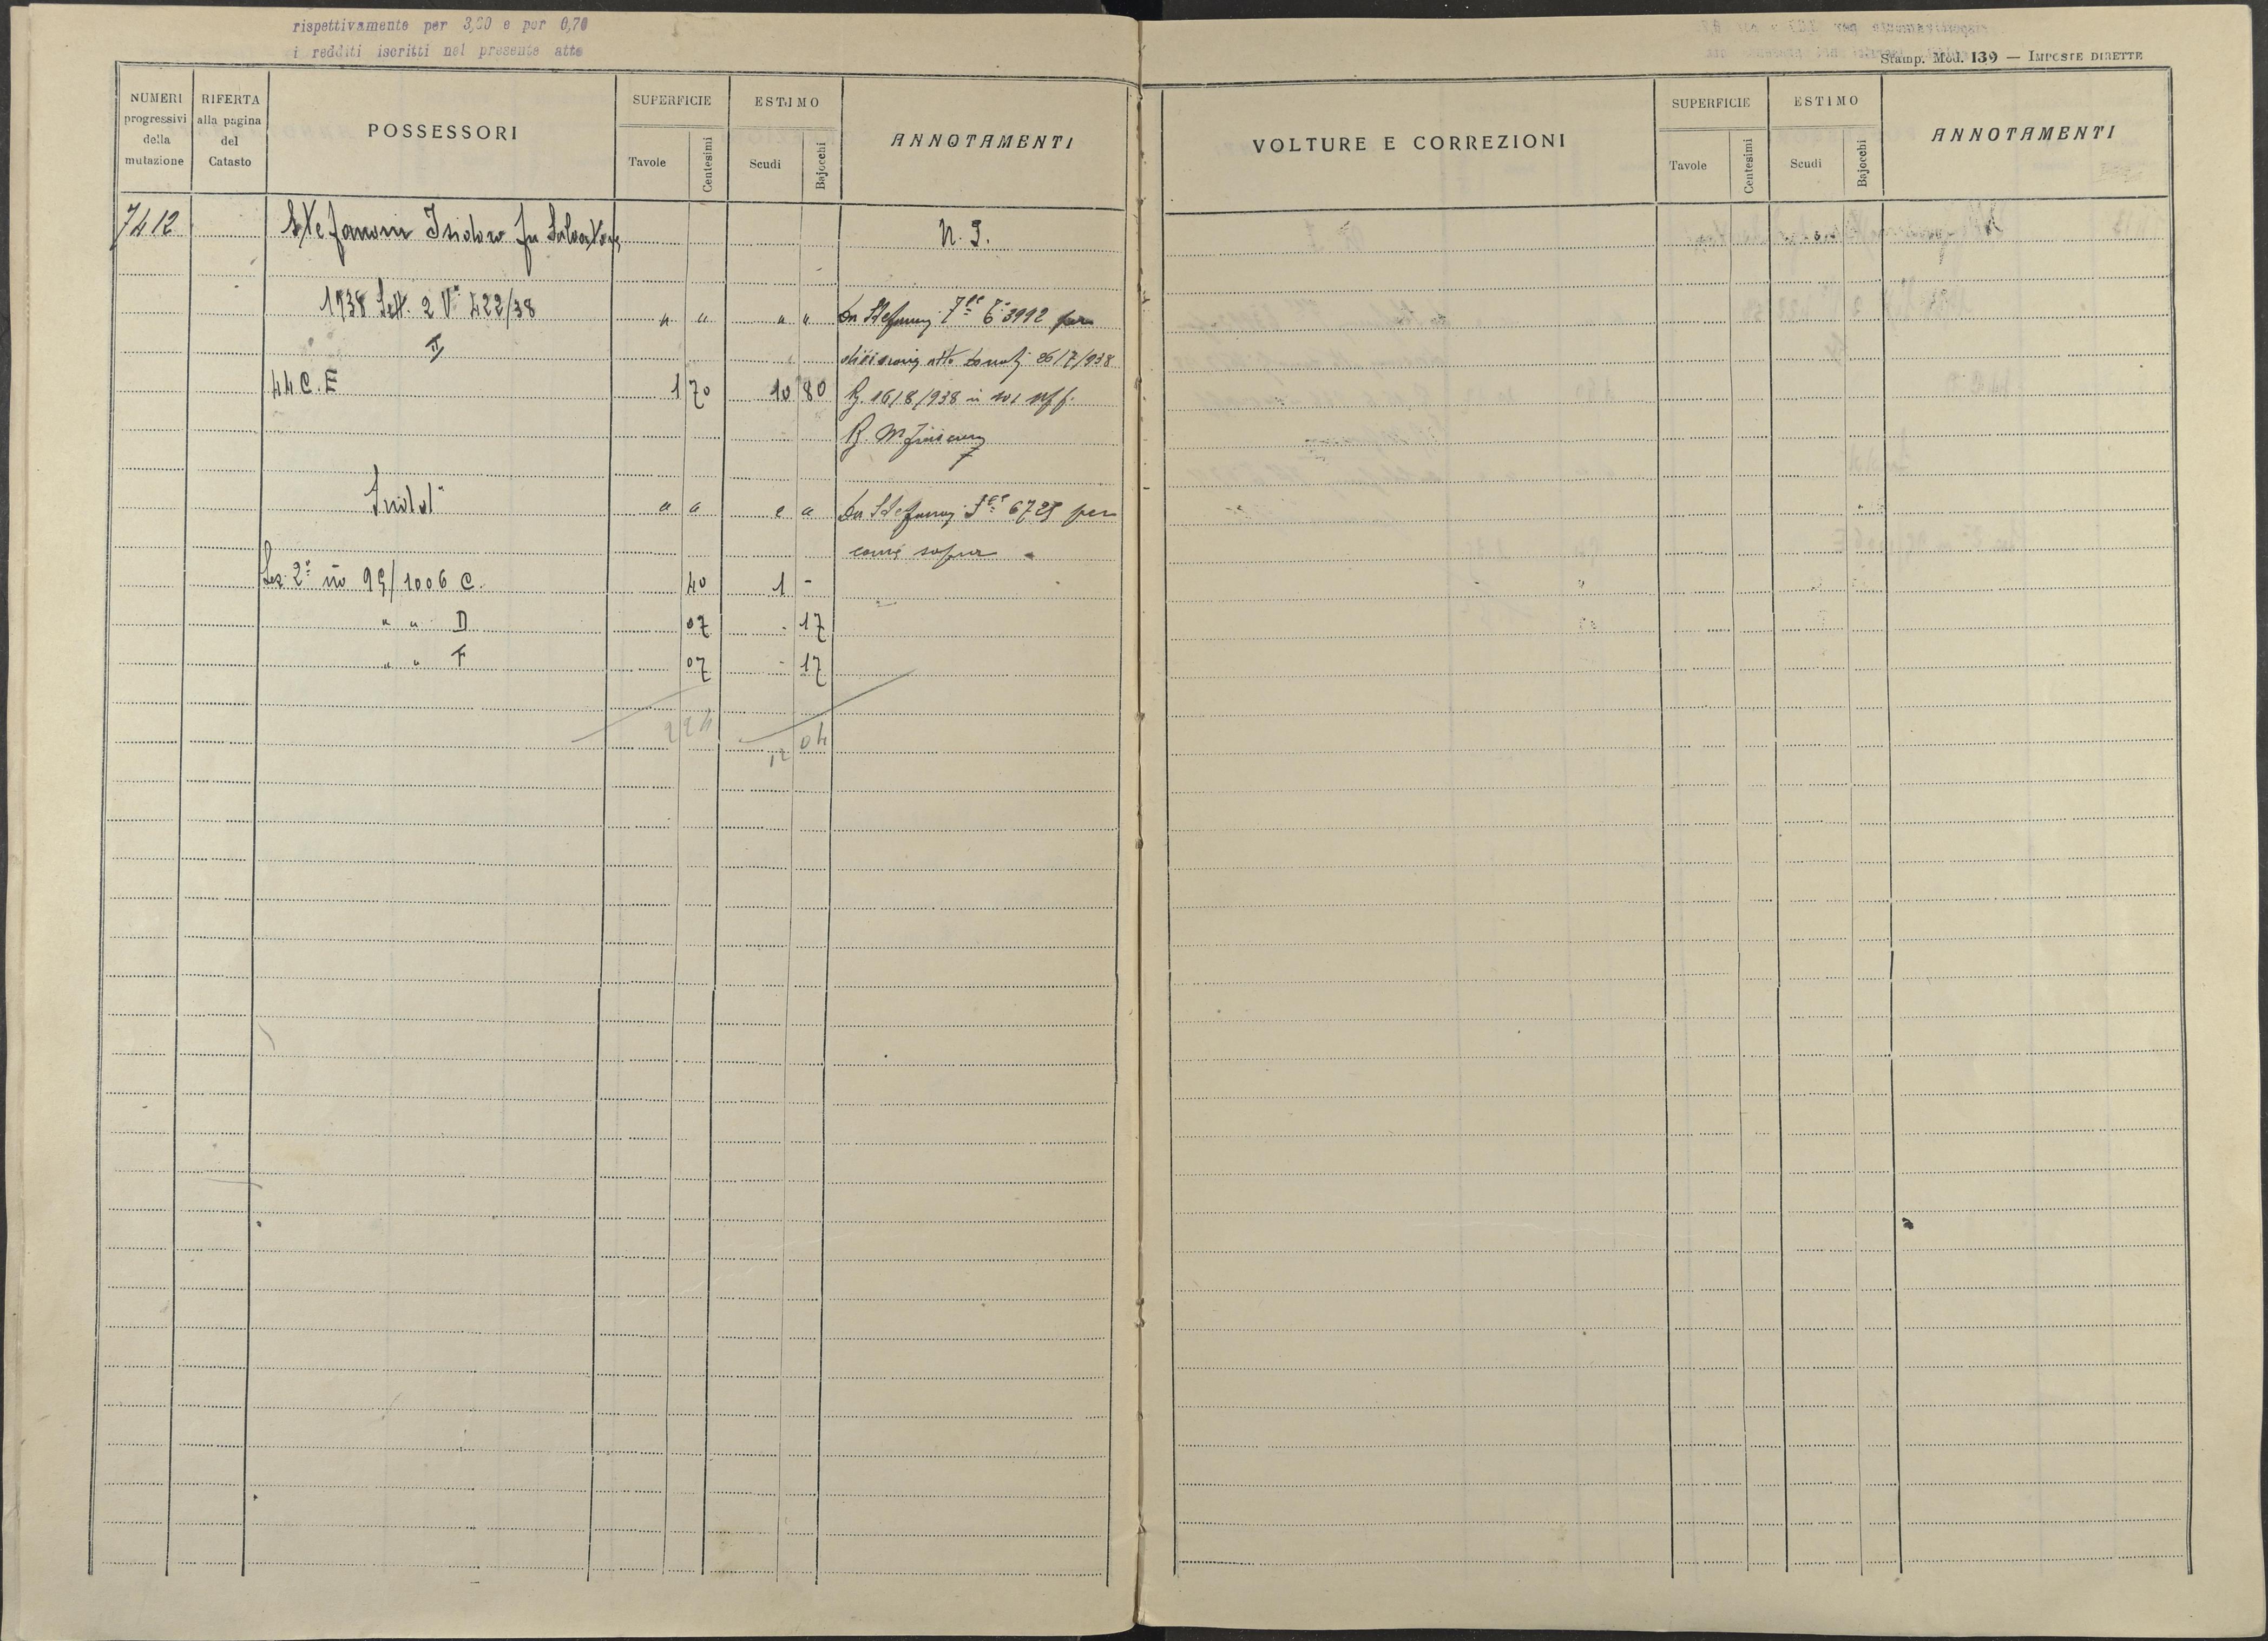 rispettivamente per 3,20 e per 0,70
i redditi iscritti nel presente atto
Stamp. Mod. 139 — IMPOSTE DIRETTE
NUMERI progressivi della mutazione
RIFERTA alla pagina del Catasto
POSSESSORI
SUPERFICIE
Tavole
Centesimi
ESTIMO
Scudi
Bajocchi
ANNOTAMENTI
VOLTURE E CORREZIONI
SUPERFICIE
Tavole
Centesimi
ESTIMO
Scudi
Bajocchi
ANNOTAMENTI
7412 Stefanoni Isidoro fu Salvatore N. I.
1938 Sett. 2 V° 422/38 " " " " Da 6 3992 per
II atto 26/7/938
44 C. E 1 70 10 80 R. 16/8/938
R.
" " " " Da 6725 per
come sopra
Sez. 2ª no 99/1006 C. 40 1 -
" " D 07 - 17
" " F 07 - 17
2 24 12 04